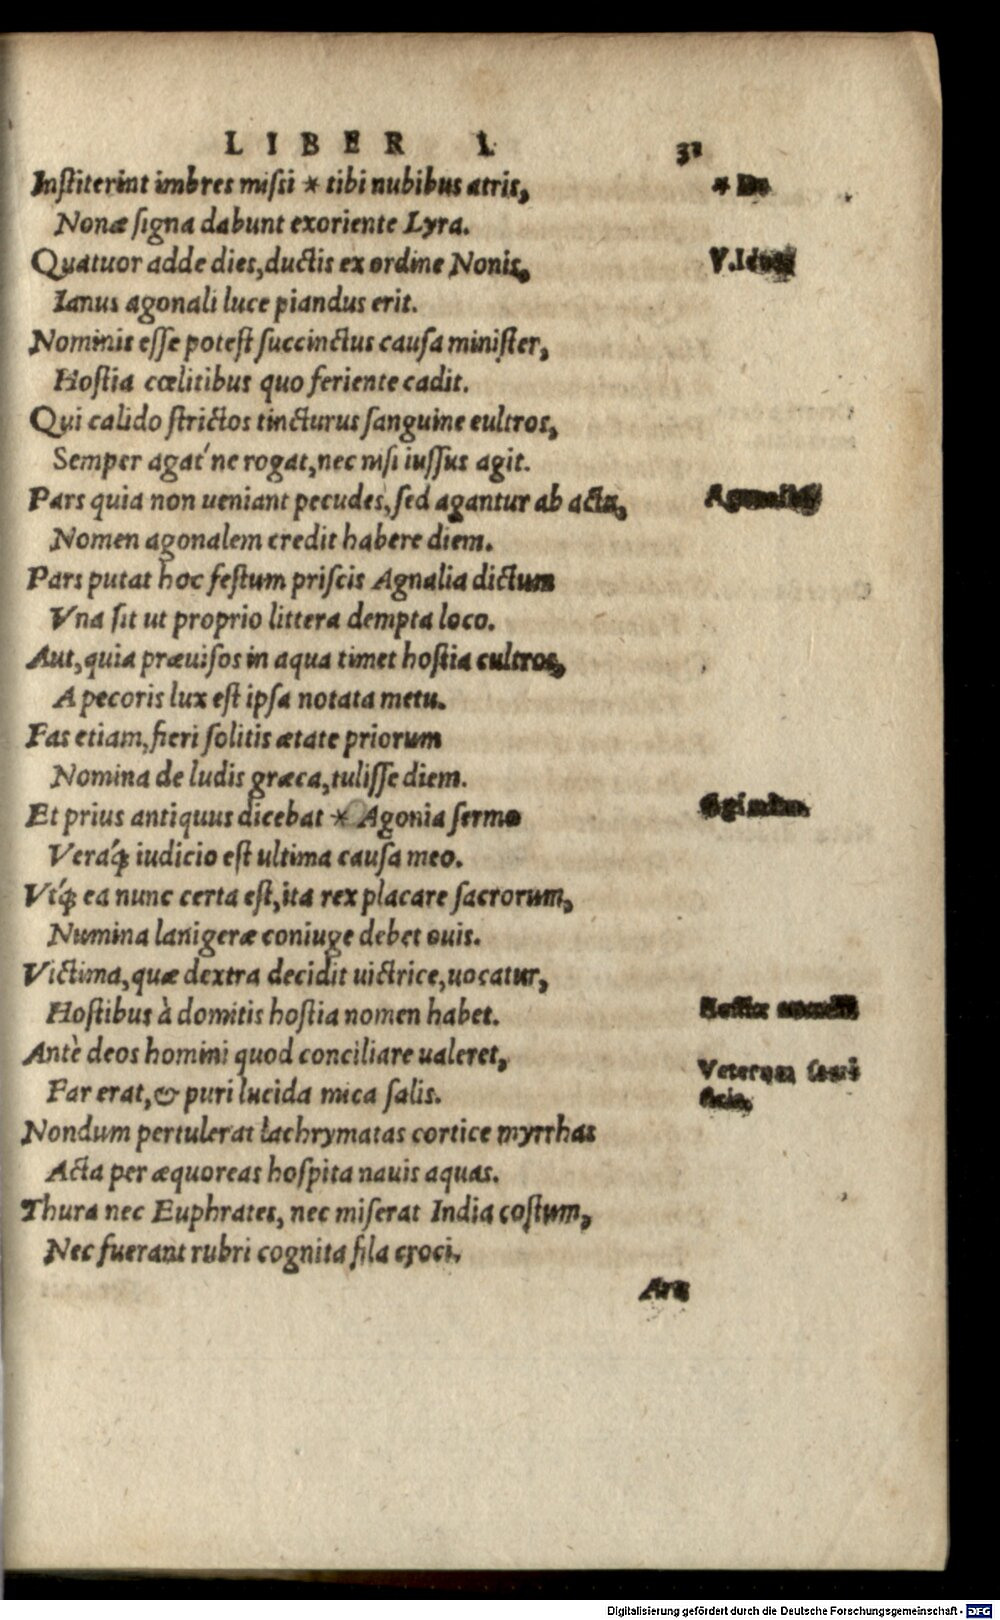 LIBER I. 31
Institerint imbres missi * tibi nubibus atris, * De
Nonæ signa dabunt exoriente Lyra.
Quatuor adde dies, ductis ex ordine Nonis, V. Idus
Ianus agonali luce piandus erit.
Nominis esse potest succinctus causa minister,
Hostia cœlitibus quo feriente cadit.
Qui calido strictos tincturus sanguine eultros,
Semper agat´ne rogat, nec nisi iussus agit.
Pars quia non ueniant pecudes, sed agantur ab actu,
Nomen agonalem credit habere diem.
Pars putat hoc festum priscis Agnalia dictum
Vna sit ut proprio littera dempta loco.
Aut, quia præuisos in aqua timet hostia cultros,
A pecoris lux est ipsa notata metu.
Fas etiam, fieri solitis ætate priorum
Nomina de ludis græca, tulisse diem.
Et prius antiquus dicebat * Agonia sermo
Veráq́; iudicio est ultima causa meo.
Vtq́; ea nunc certa est, ita rex placare sacrorum,
Numina lanigeræ coniuge debet ouis.
Victima, quæ dextra decidit uictrice, uocatur,
Hostibus à domitis hostia nomen habet.
Antè deos homini quod conciliare ualeret,
Far erat, & puri lucida mica salis.
Veterum sacri
ficia.
Nondum pertulerat lachrymatas cortice myrrhas
Acta per æquoreas hospita nauis aquas.
Thura nec Euphrates, nec miserat India costum,
Nec fuerant rubri cognita fila croci.
Ara
Digitalisierung gefördert durch die Deutsche Forschungsgemeinschaft - DFG